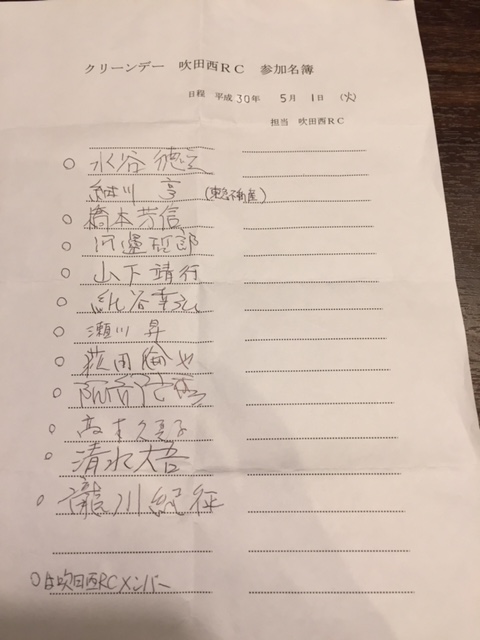 クリーンデー 吹田西RC 参加名簿
日程 平成 30年 5月 1日 (火)
担当 吹田西RC
○ 水谷 徳
細川 亨 (東急不動産)
○ 橋本芳信
○ 河邊哲郎
○ 山下靖行
○ 紙谷幸弘
○ 瀬川 昇
○ 荻田倫也
○ 阿
○ 高
○ 清水大吾
○ 瀧川紀征
○は吹田西RCメンバー